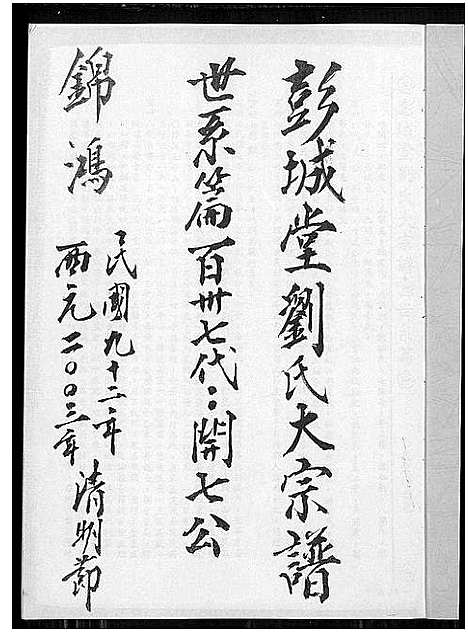 彭城堂劉氏大宗譜
世系篇百卅七代：開七公
民國九十二年
西元二〇〇三年 清明節
錦鴻